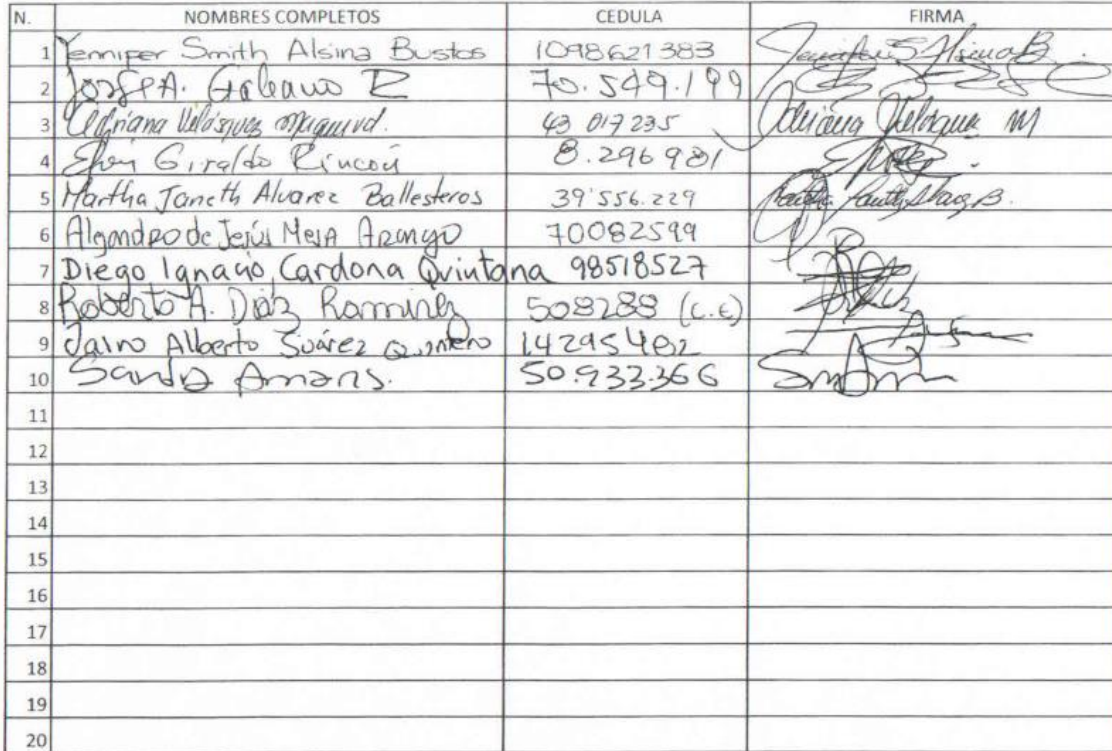 N. NOMBRES COMPLETOS CEDULA FIRMA
1 Yenniper Smith Alsina Bustos 1098621383
2 A. Galeano R 70.549.199
3 Adriana Velásquez 43 017235 Adriana Velásquez M
4 Giraldo Rincón 8.296981
5 Martha Janeth Alvarez Ballesteros 39'556.229
6 Alejandro de Jesús Mesa Arango 70082599
7 Diego Ignacio Cardona Quintana 98518527
8 Roberto A. Díaz Ramirez 508288 (C.E)
9 Jairo Alberto Suárez Quintero
10 Sandra Amaris. 50.933.366
11
12
13
14
15
16
17
18
19
20